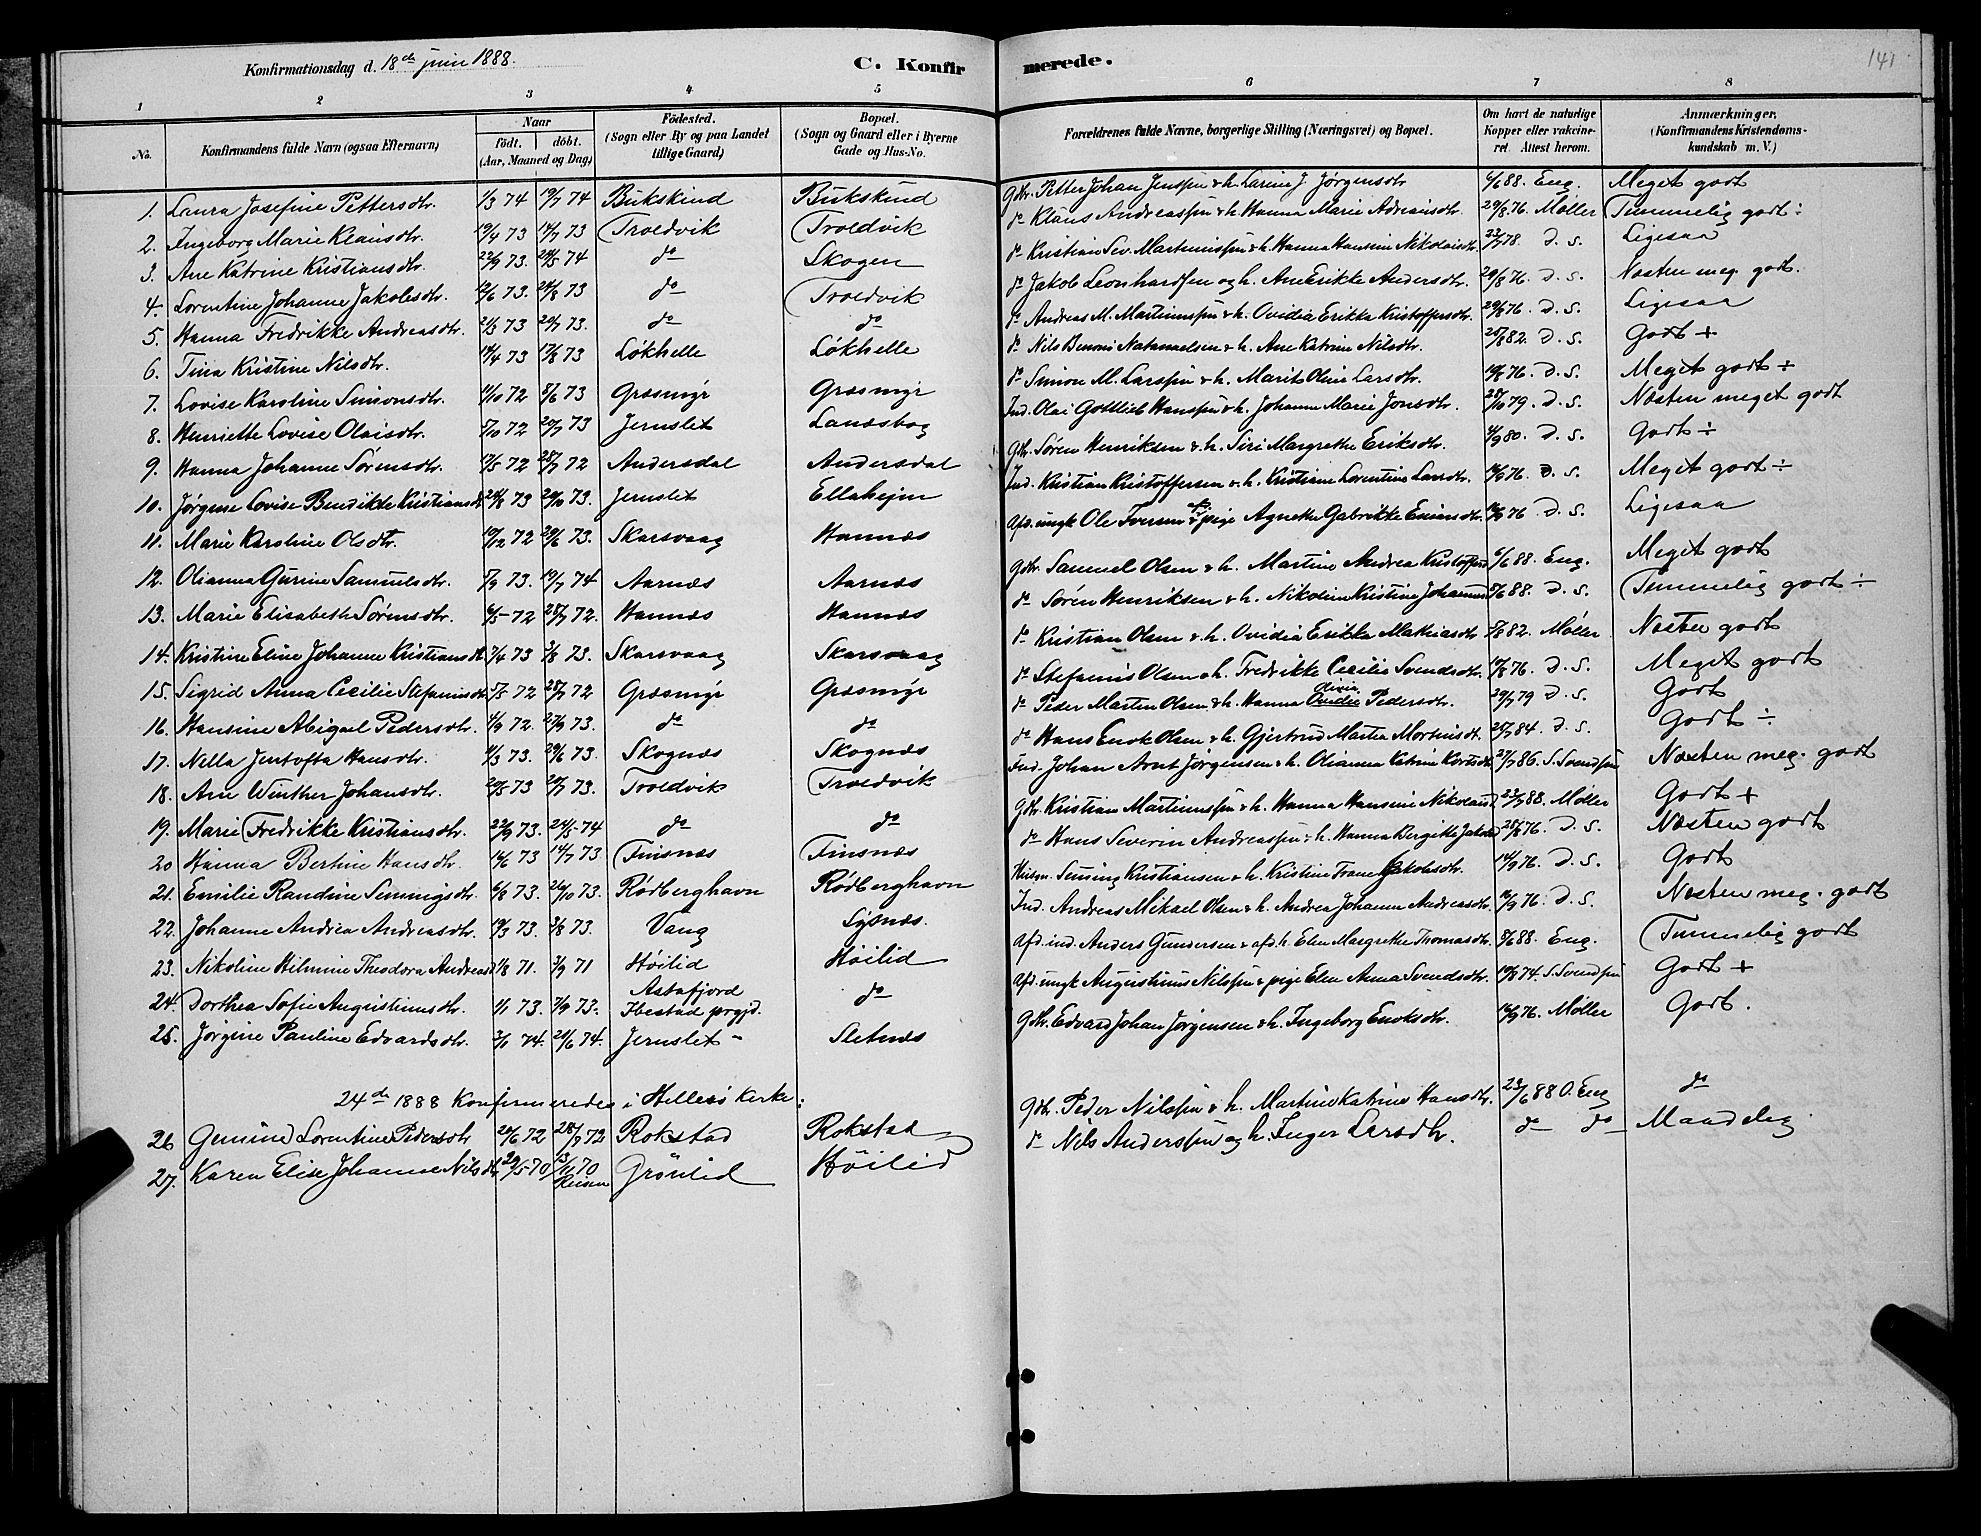 Konfirmationsdag d. 18de juni 1888. C. Konfirmerede. 141
1 2 3 4 5 6 7 8
No. Konfirmandens fulde Navn (ogsaa Efternavn) Naar født. døbt. (Aar, Maaned og Dag) Fødested. (Sogn eller By og paa Landet tillige Gaard) Bopæl. (Sogn og Gaard eller i Byerne Gade og Hus-No. Forældrenes fulde Navne, borgerlige Stilling (Næringsvei) og Bopæl. Om havt de naturlige Kopper eller vakcineret. Attest herom. Anmærkninger, (Konfirmandens Kristendomskundskab m. V.)
1. Laura Josefine Pettersdtr. 1/3 74 19/7 74 Bukskind Bukskind Gdbr. Petter Johan Jensen & h. Larine J. Jørgensdtr 4/6 88. Eng. Meget godt
2. Ingeborg Marie Klausdtr. 19/4 73 14/7 73 Troldvik Troldvik do Klaus Andreassen & h. Hanna Marie Adriansdtr. 29/8 76. Møller Temmelig godt ÷
3. Ane Katrine Kristiansdtr. 22/9 73. 24/5 74 do Skogen do Kristian Sev. Martinussen & h. Hanna Hansine Nikolaisdtr. 23/7 78. D. S. Ligesaa
4. Lorentine Johanne Jakobsdtr. 12/6 73. 24/8 73 do Troldvik do Jakob Leonhardsen og h. Ane Erikke Andersdtr. 29/8 76. D. S. Næsten meg. godt.
5. Hanna Fredrikke Andreasdtr. 21/3 73 20/7 73. do do do Andreas M. Martinussen & h. Ovidia Erikka Kristoffersdtr. 29/8 76. D. S. Ligesaa
6. Tina Kristine Nilsdtr. 14/4 73 17/8 73 Løkhelle Løkhelle do Nils Benoni Natanaelsen & h. Ane Katrine Nilsdtr. 25/7 82. D. S. Godt +
7. Lovise Karoline Simonsdtr. 11/10 72 8/6 73 Græsmyr Græsmyr do Simon M. Larssen & h. Marit Oline Larsdtr. 19/8 76. D. S. Meget godt ÷
8. Henriette Lovise Olaisdtr. 5/10 72 20/7 73 Jernslet Landsbog Ind. Olai Gottlieb Hanssen & h. Johanne Marie Jonsdtr. 28/10 79. D. S. Næsten meget godt
9. Hanna Johanne Sørensdtr. 17/5 72 28/7 72 Andersdal Andersdal Gdbr. Søren Henriksen & h. Siri Margrethe Eriksdtr. 4/9 80. D. S. Godt ÷
10. Jørgine Lovise Bendikte Kristiansdtr 24/8 73 29/10 73. Jernslet Ellahejm Ind. Kristian Kristoffersen & h. Kristiane Lorentine Larsdtr. 14/9 76. D. S. Meget godt ÷
11. Marie Karoline Olsdtr. 19/12 72 29/6 73. Skarsvaag Hannæs Afd. ungk Ole Iversen & afd. pige Agnethe Gabrikke Eriansdtr. 16/9 76 D. S. Ligesaa
12. Olianna Gurine Samuelsdtr. 5/9 73. 19/7 74 Aarnæs Aarnæs Gdbr. Samuel Olsen & h. Martine Andrea Kristoffersd. 6/6 88. Eng. Meget godt
13. Marie Elisabeth Sørensdtr. 6/5 72 28/7 72. Hannæs Hannæs do Søren Henriksen & h. Nikoline Kristine Johannesd. 5/6 88. D. S. Temmelig godt ÷
14. Kristine Eline Johanne Kristiansdtr 7/4 73 3/8 73. Skarsvaag Skarsvaag do Kristian Olsen & h. Ovidia Erikka Mathiasdtr. 5/8 82. Møller Næsten godt
15. Sigrid Anna Cecilie Stefanusdtr 5/5 72 28/7 72 Græsmyr Græsmyr do Stefanus Olsen & h. Fredrikke Cecilie Svendsdtr. 19/8 76. D. S. Meget godt
16. Hansine Abigael Pedersdtr. 4/9 72. 27/9 73. do do do Peder Marten Olsen & h. Hanna Olivia Pedersdtr. 29/7 79 D. S. Godt
17. Nella Jentofta Hansdtr. 11/3 73. 29/6 73. Skognæs Skognæs do Hans Enok Olsen & h. Gjertrud Martea Mortensdt. 25/7 84. D. S. Godt ÷
18. Ane Winther Johansdtr. 20/5 73 20/7 73. Troldvik Troldvik Ind. Johan Arnt Jørgensen & h. Olianna Katrine Kortsdtr 27/7 86. S. Svendsen Næsten meg. godt
19. Marie Fredrikke Kristiansdtr. 22/9 73. 24/5 74 do do Gdbr. Kristian Martinussen & h. Hanna Hansine Nikolaisd. 23/7 88. Møller Godt +
20 Hanna Bertine Hansdtr. 14/6 73 14/7 73. Finsnæs Finsnæs do Hans Severin Andreassen & h. Hanna Bergitte Jakobsd. 28/8 76. D. S. Næsten godt
21. Emilie Randine Senningsdtr. 6/8 73 26/10 73. Rødberghavn Rødberghavn Husm. Senning Kristiansen & h. Kristine Frane Jakobsdtr. 14/9 76. D. S. Godt
22. Johanne Andrea Andreasdtr. 19/3 73. 3/8 73. Vang Lysnæs. Ind. Andreas Mikael Olsen & h. Andrea Johanna Andreasdtr. 16/9 76. D. S. Næsten meg. godt
23. Nikoline Hilmine Theodora Andersd. 1/8 71. 3/9 71 Høilid Høilid Afd. ind. Anders Gunersen & afd. h. Elen Margrethe Thomasdtr. 8/6 88. Eng. Temmelig godt
24. Dorthea Sofie Augustinusdtr. 1/1 73. 7/9 73. Astafjord Ibestad prgjd. do Afd. ungk Augustinus Nilssen & pige Elen Anna Svendsdtr. 19/8 74. S. Svendsen Godt +
25. Jørgine Pauline Edvardsdtr. 2/1 74. 21/6 74. Jernslet Sletnæs Gdbr. Edvard Johan Jørgensen & h. Ingeborg Enoksdtr. 16/9 76. Møller Godt.
24de 1888 Konfirmeredes i Hellesö Kirke:
26 Gemine Lorentine Pedersdtr 20/6 72 28/7 72 Rokstad Rokstad Gdbr. Peder Nilssen & h. Martine Katrine Hansdtr. 23/6 88 O. Eng do
27. Karen Elise Johanne Nilsdtr 29/5 70 13/11 70 Reisen Grönlid Höilid do Nils Anderssen og h. Inger Larsdtr. do do Maadelig